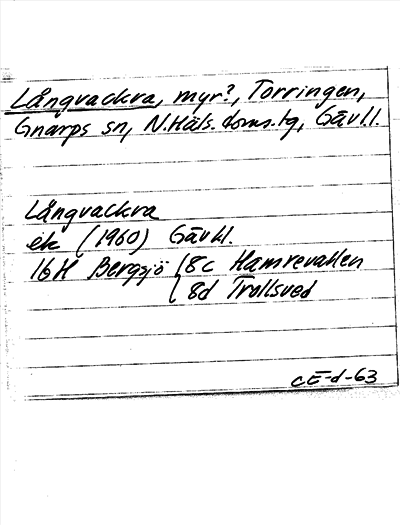 Långvackra, myr?, Torringen,
Gnarps sn, N.Häls. doms.tg, Gävl.l.
Långvackra
ek (1960) Gävl.l.
16H Bergsjö { 8c Hamrevallen
{ 8d Trollsved
CE-d-63